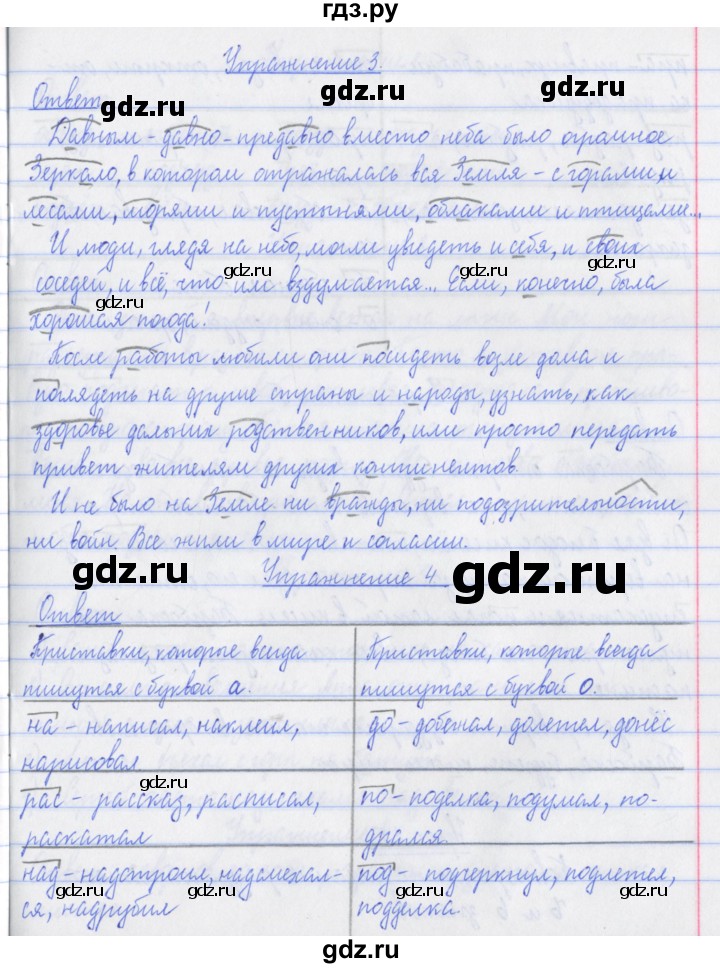 гдз.ру
Упражнение 3.
Ответ
gdz.ru
gdz.ru
gdz.ru
Давным-давно-предавно вместо неба было огромное
Зеркало, в котором отражалась вся Земля - с горами, и
gdz.ru
лесами, морями и пустынями, облаками и птицами...
И люди, глядя на небо, могли увидеть и себя, и своих
gdz.ru
gdz.ru
соседей, и всё, что им вздумается... Если, конечно, была
gdz.ru
хорошая погода!
После работы любили они посидеть возле дома и
поглядеть на другие страны и народы, узнать, как
здоровье дальних родственников, или просто передать
привет жителям других континентов.
И не было на Земле ни вражды, ни подозрительности,
ни войн. Все жили в мире и согласии.
gdz.ru
Упражнение 4.
gdz.ru
Ответ
Приставки, которые всегда
пишутся с буквой а.
Приставки, которые всегда
пишутся с буквой о.
gdz.ru
gdz.ru
на - написал, наклеил,
нарисовал
до - добежал, долетел, донёс
gdz.ru
рас - рассказ, расписал,
раскатал
по - поделка, подумал, по-
дрался.
над - надстроил, надсмехал-
ся, надрубил
под - подчеркнул, подлетел,
подделка.
gdz.ru
gdz.ru
gdz.ru
gdz.ru
gdz.ru